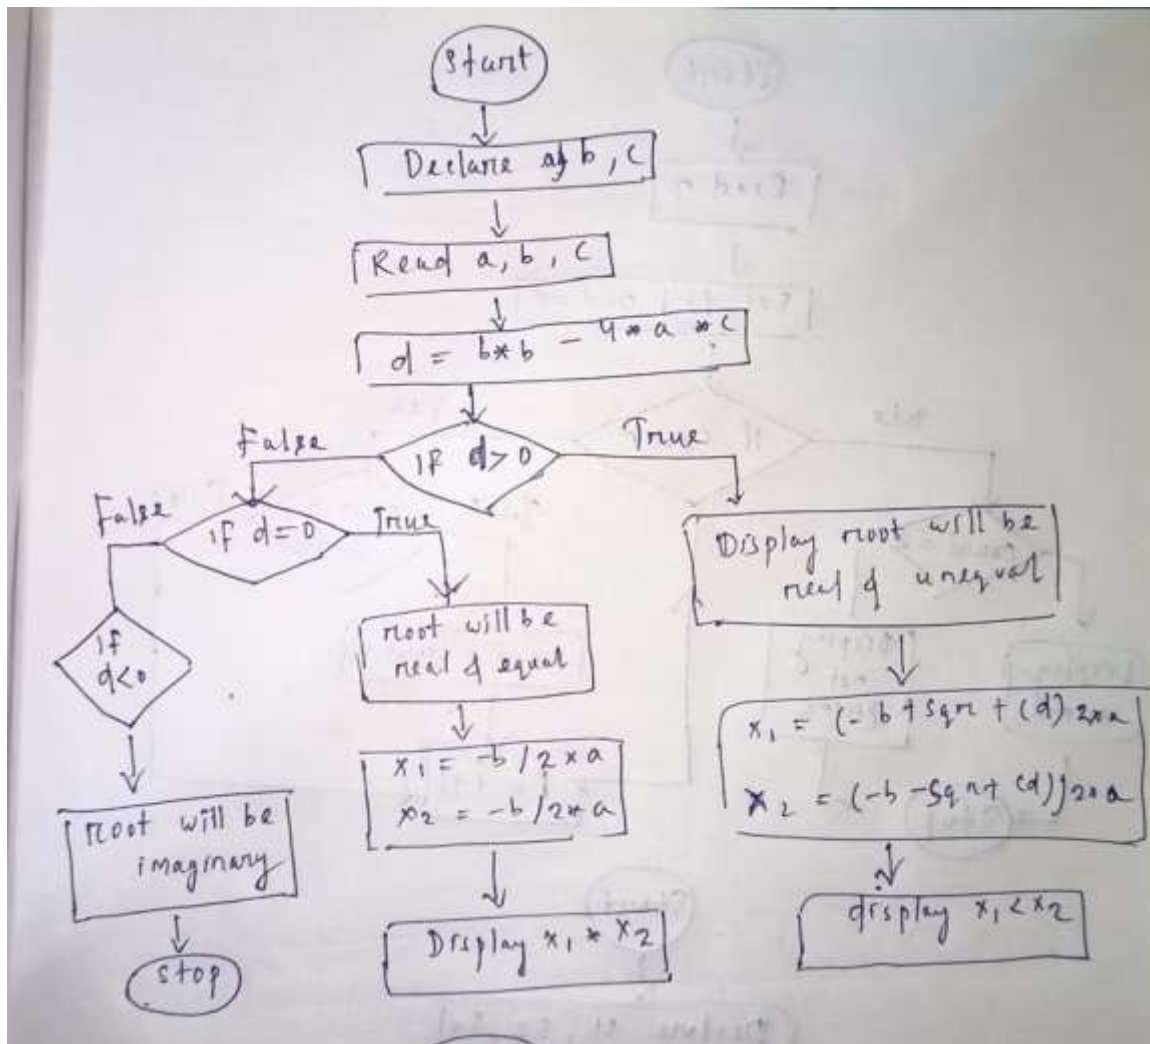 Start
Declare a, b, c
Read a, b, c
d = b*b - 4*a*c
False
if d>0
True
False
if d=0
True
Display root will be
real & unequal
if
d<0
root will be
real & equal
x1 = (-b + sqrt (d) 2*a
x2 = (-b - sqrt (d)) 2*a
x1 = -b/2*a
x2 = -b/2*a
root will be
imaginary
Display x1 * x2
display x1 < x2
stop